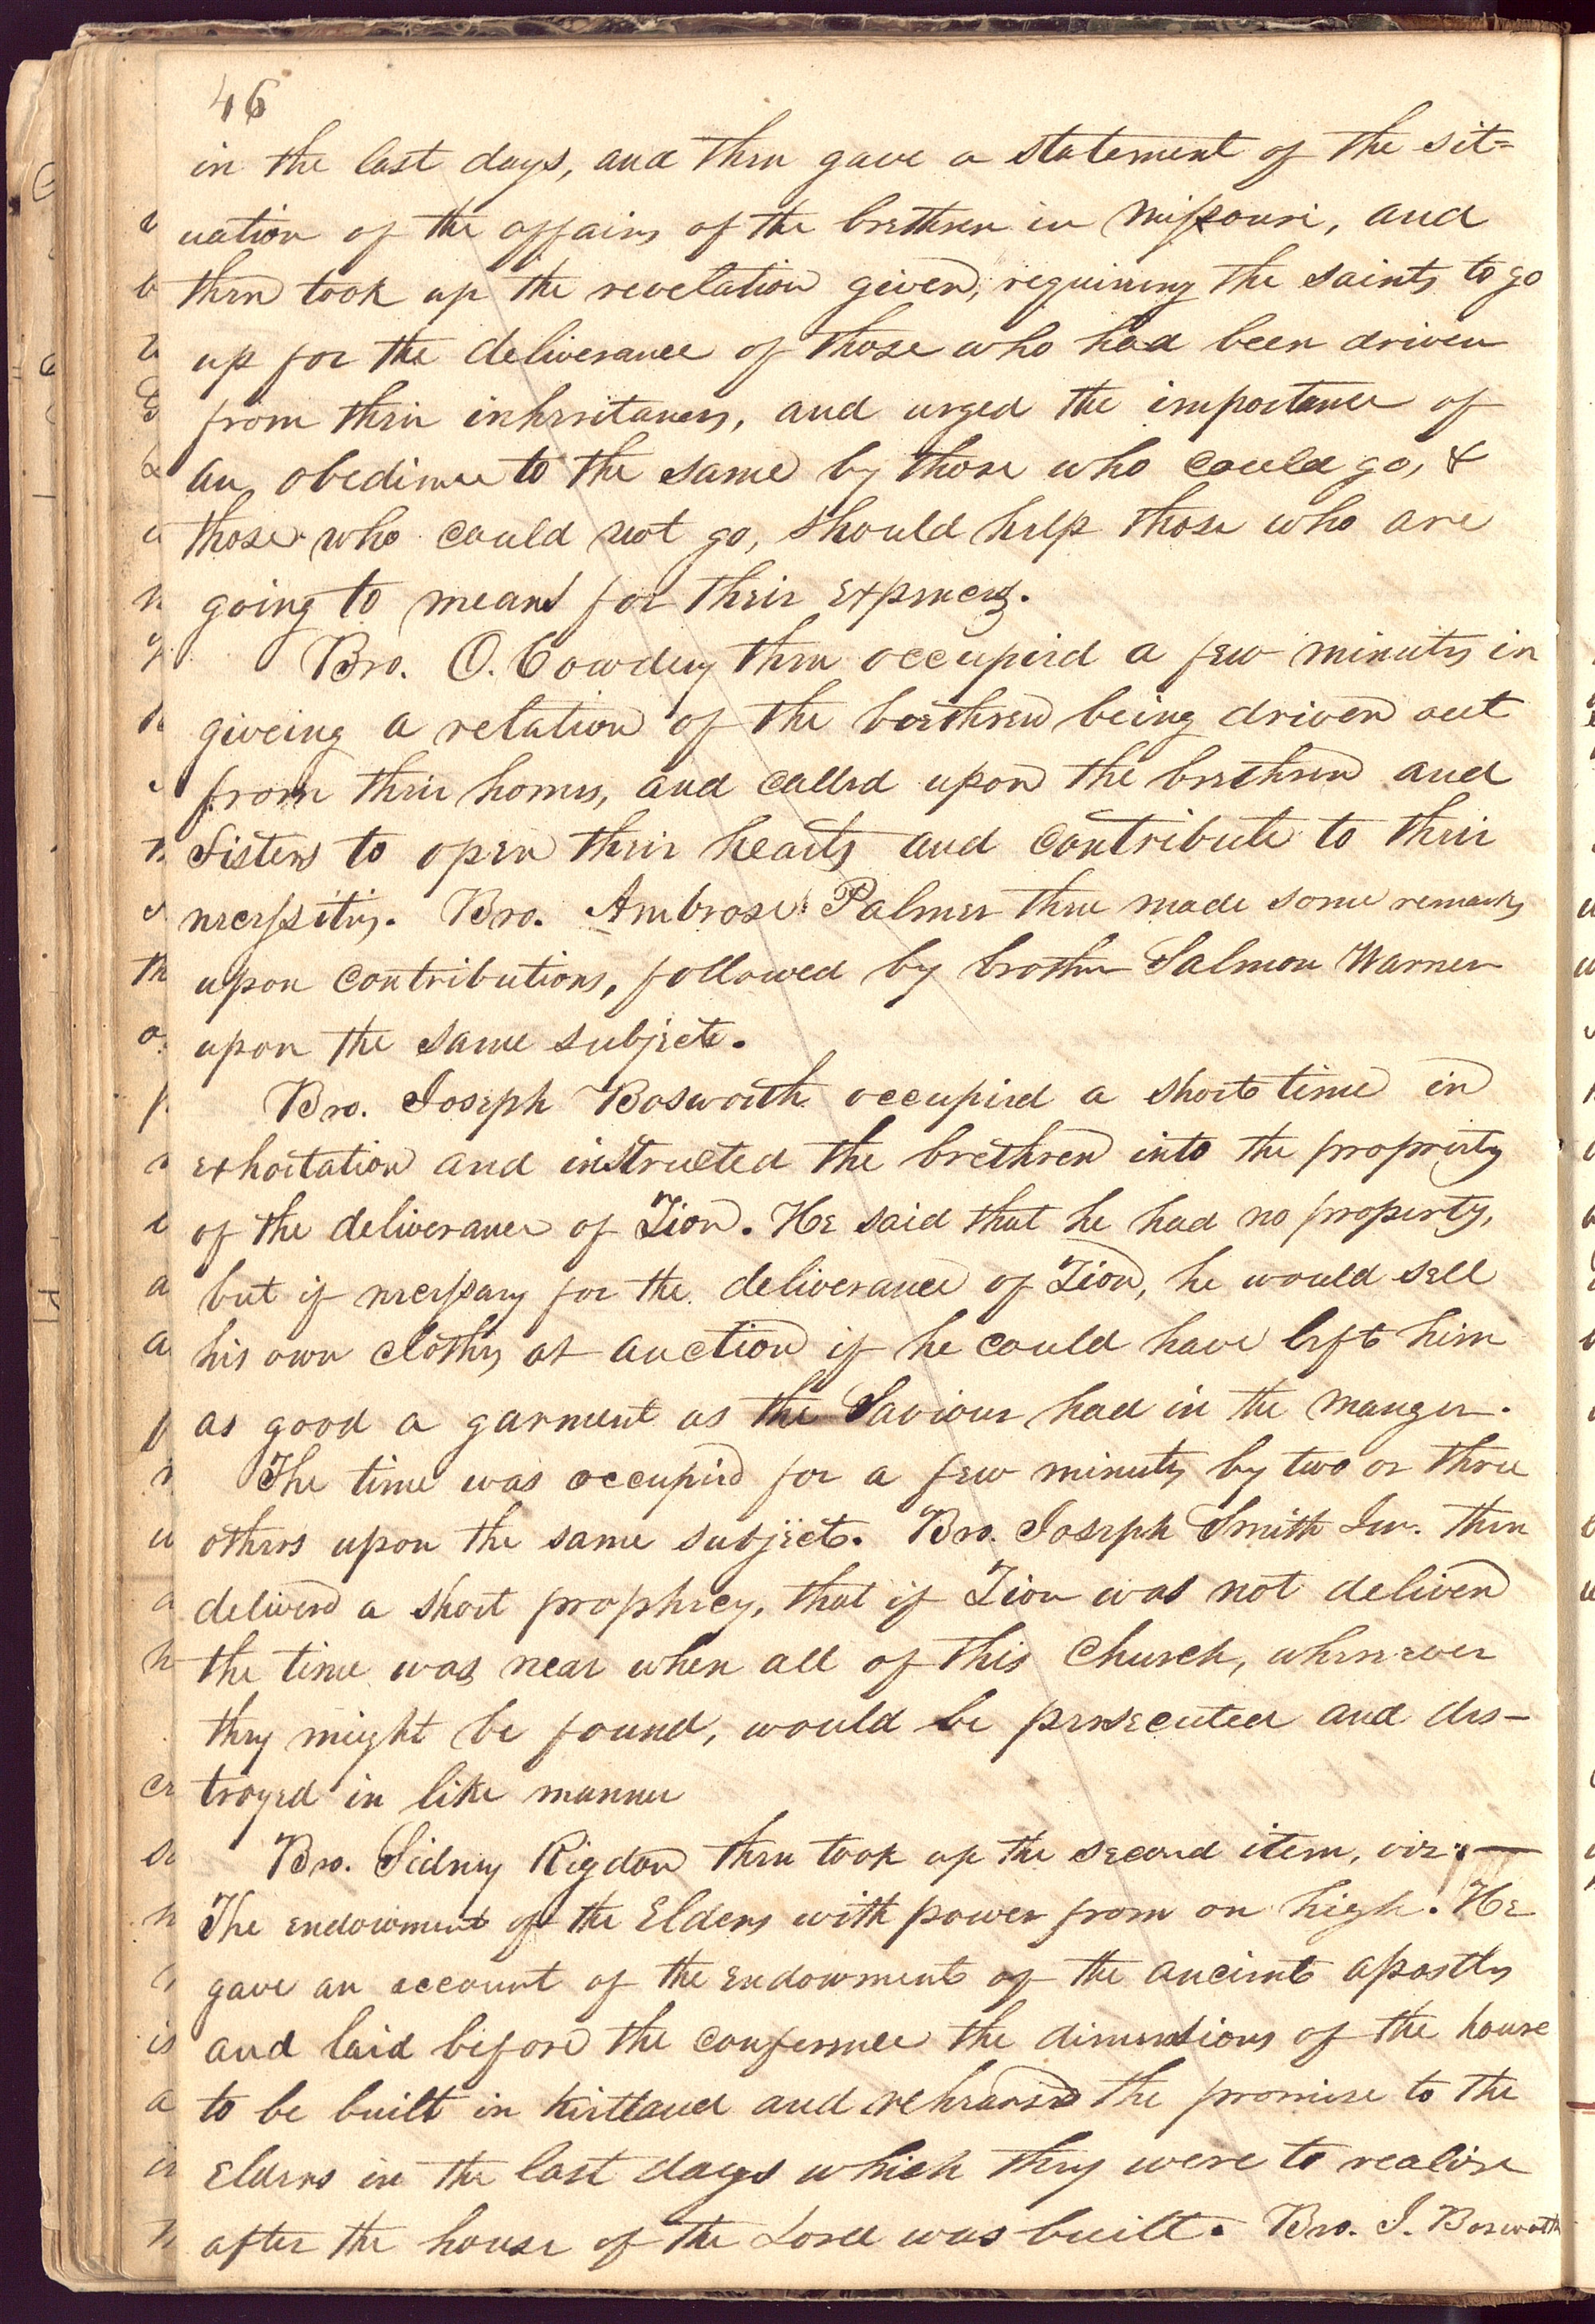 46
in the last days, and then gave a statement of the sit=
uation of the affairs of the brethren in Missouri, and
then took up the revelation given, requiring the saints to go
up for the deliverance of those who had been driven
from their inheritances, and urged the importance of
an obedience to the same by those who could go, &
those who could not go, should help those who are
going to means for their expences.
Bro. O. Cowdery then occupied a few minutes in
giveing a relation of the brethren being driven out
from their homes, and called upon the brethren and
Sisters to open their hearts and contribute to their
necessities. Bro. Ambrose Palmer then made some remarks
upon contributions, followed by brother Salmon Warner
upon the same subject.
Bro. Joseph Bosworth occupied a short time in
exhortation and instructed the brethren into the propriety
of the deliverance of Zion. He said that he had no property,
but if necessary for the deliverance of Zion, he would sell
his own clothes at auction if he could have left him
as good a garment as the Saviour had in the manger.
The time was occupied for a few minutes by two or three
others upon the same subject. Bro. Joseph Smith Jun. then
deliverd a short prophecy, that if Zion was not deliverd
the time was near when all of this Church, wherever
they might be found, would be persecuted and des-
troyed in like manner
Bro. Sidney Rigdon then took up the second item, viz:—
The endowment of the Elders with power from on high. He
gave an account of the endowment of the ancient apostles
and laid before the conference the dimensions of the house
to be built in Kirtland and rehearsed the promise to the
Elders in the last days which they were to realize
after the house of the Lord was built. Bro. J. Bosworth